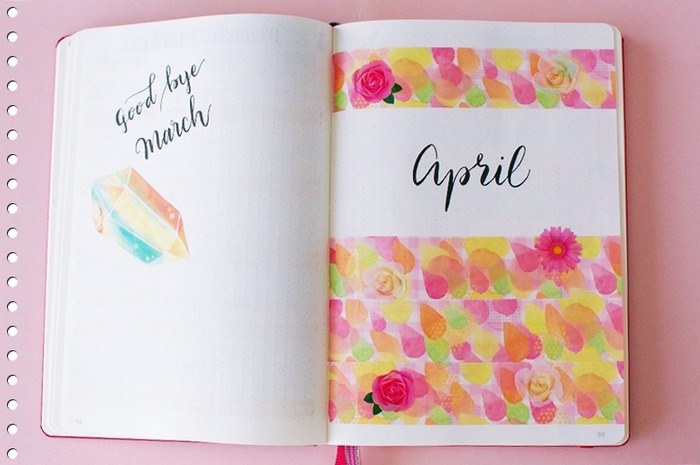 Good bye
March
April